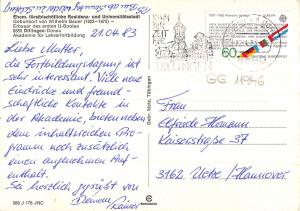 Ehem. fürstbischöfliche Residenz- und Universitätsstadt
Geburtsort von Wilhelm Bauer (1822-1876)
Erbauer des ersten U-Bootes
8880 Dillingen/Donau
Akademie für Lehrerfortbildung
21.04.83
Liebe Mutter,
die Fortbildungstagung ist
sehr interessant. Viele neue
Eindrücke und freund-
schaftliche Kontakte in
der Akademie, bieten neben
dem inhaltreichen Pro-
gramm noch zusätzlich
einen angenehmen Auf-
enthalt.
Sei herzlich gegrüßt von
Deinem
Rainer
DILLINGEN
60
GG 11946
Frau
Elfriede Homann
Kaiserstraße 37
3162 Uetze / Hannover